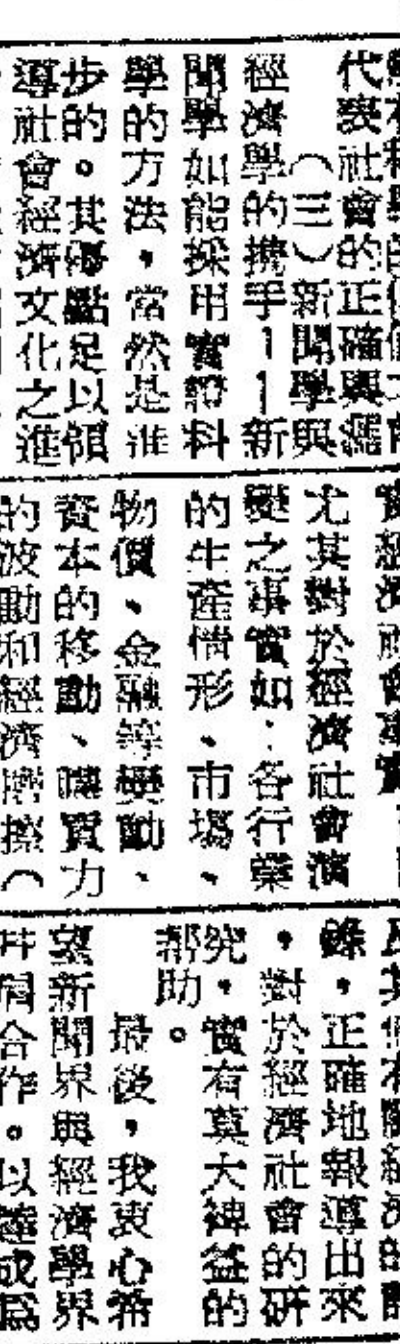 代表社會的正確與濫
（三）新聞學與
經濟學的携手——新
聞學如能採用實證料
學的方法，當然是進
步的。其優點足以領
導社會經濟文化之進
實經濟社會事實
尤其對於經濟社會演
變之事實如：各行業
的生產情形、市場、
物價、金融等變動、
資本的移動、購買力
的波動和經濟摩擦（
錄，正確地報導出來
，對於經濟社會的研
究，實有莫大裨益的
帮助。
最後，我衷心希
望新聞界與經濟學界
合作。以達成為